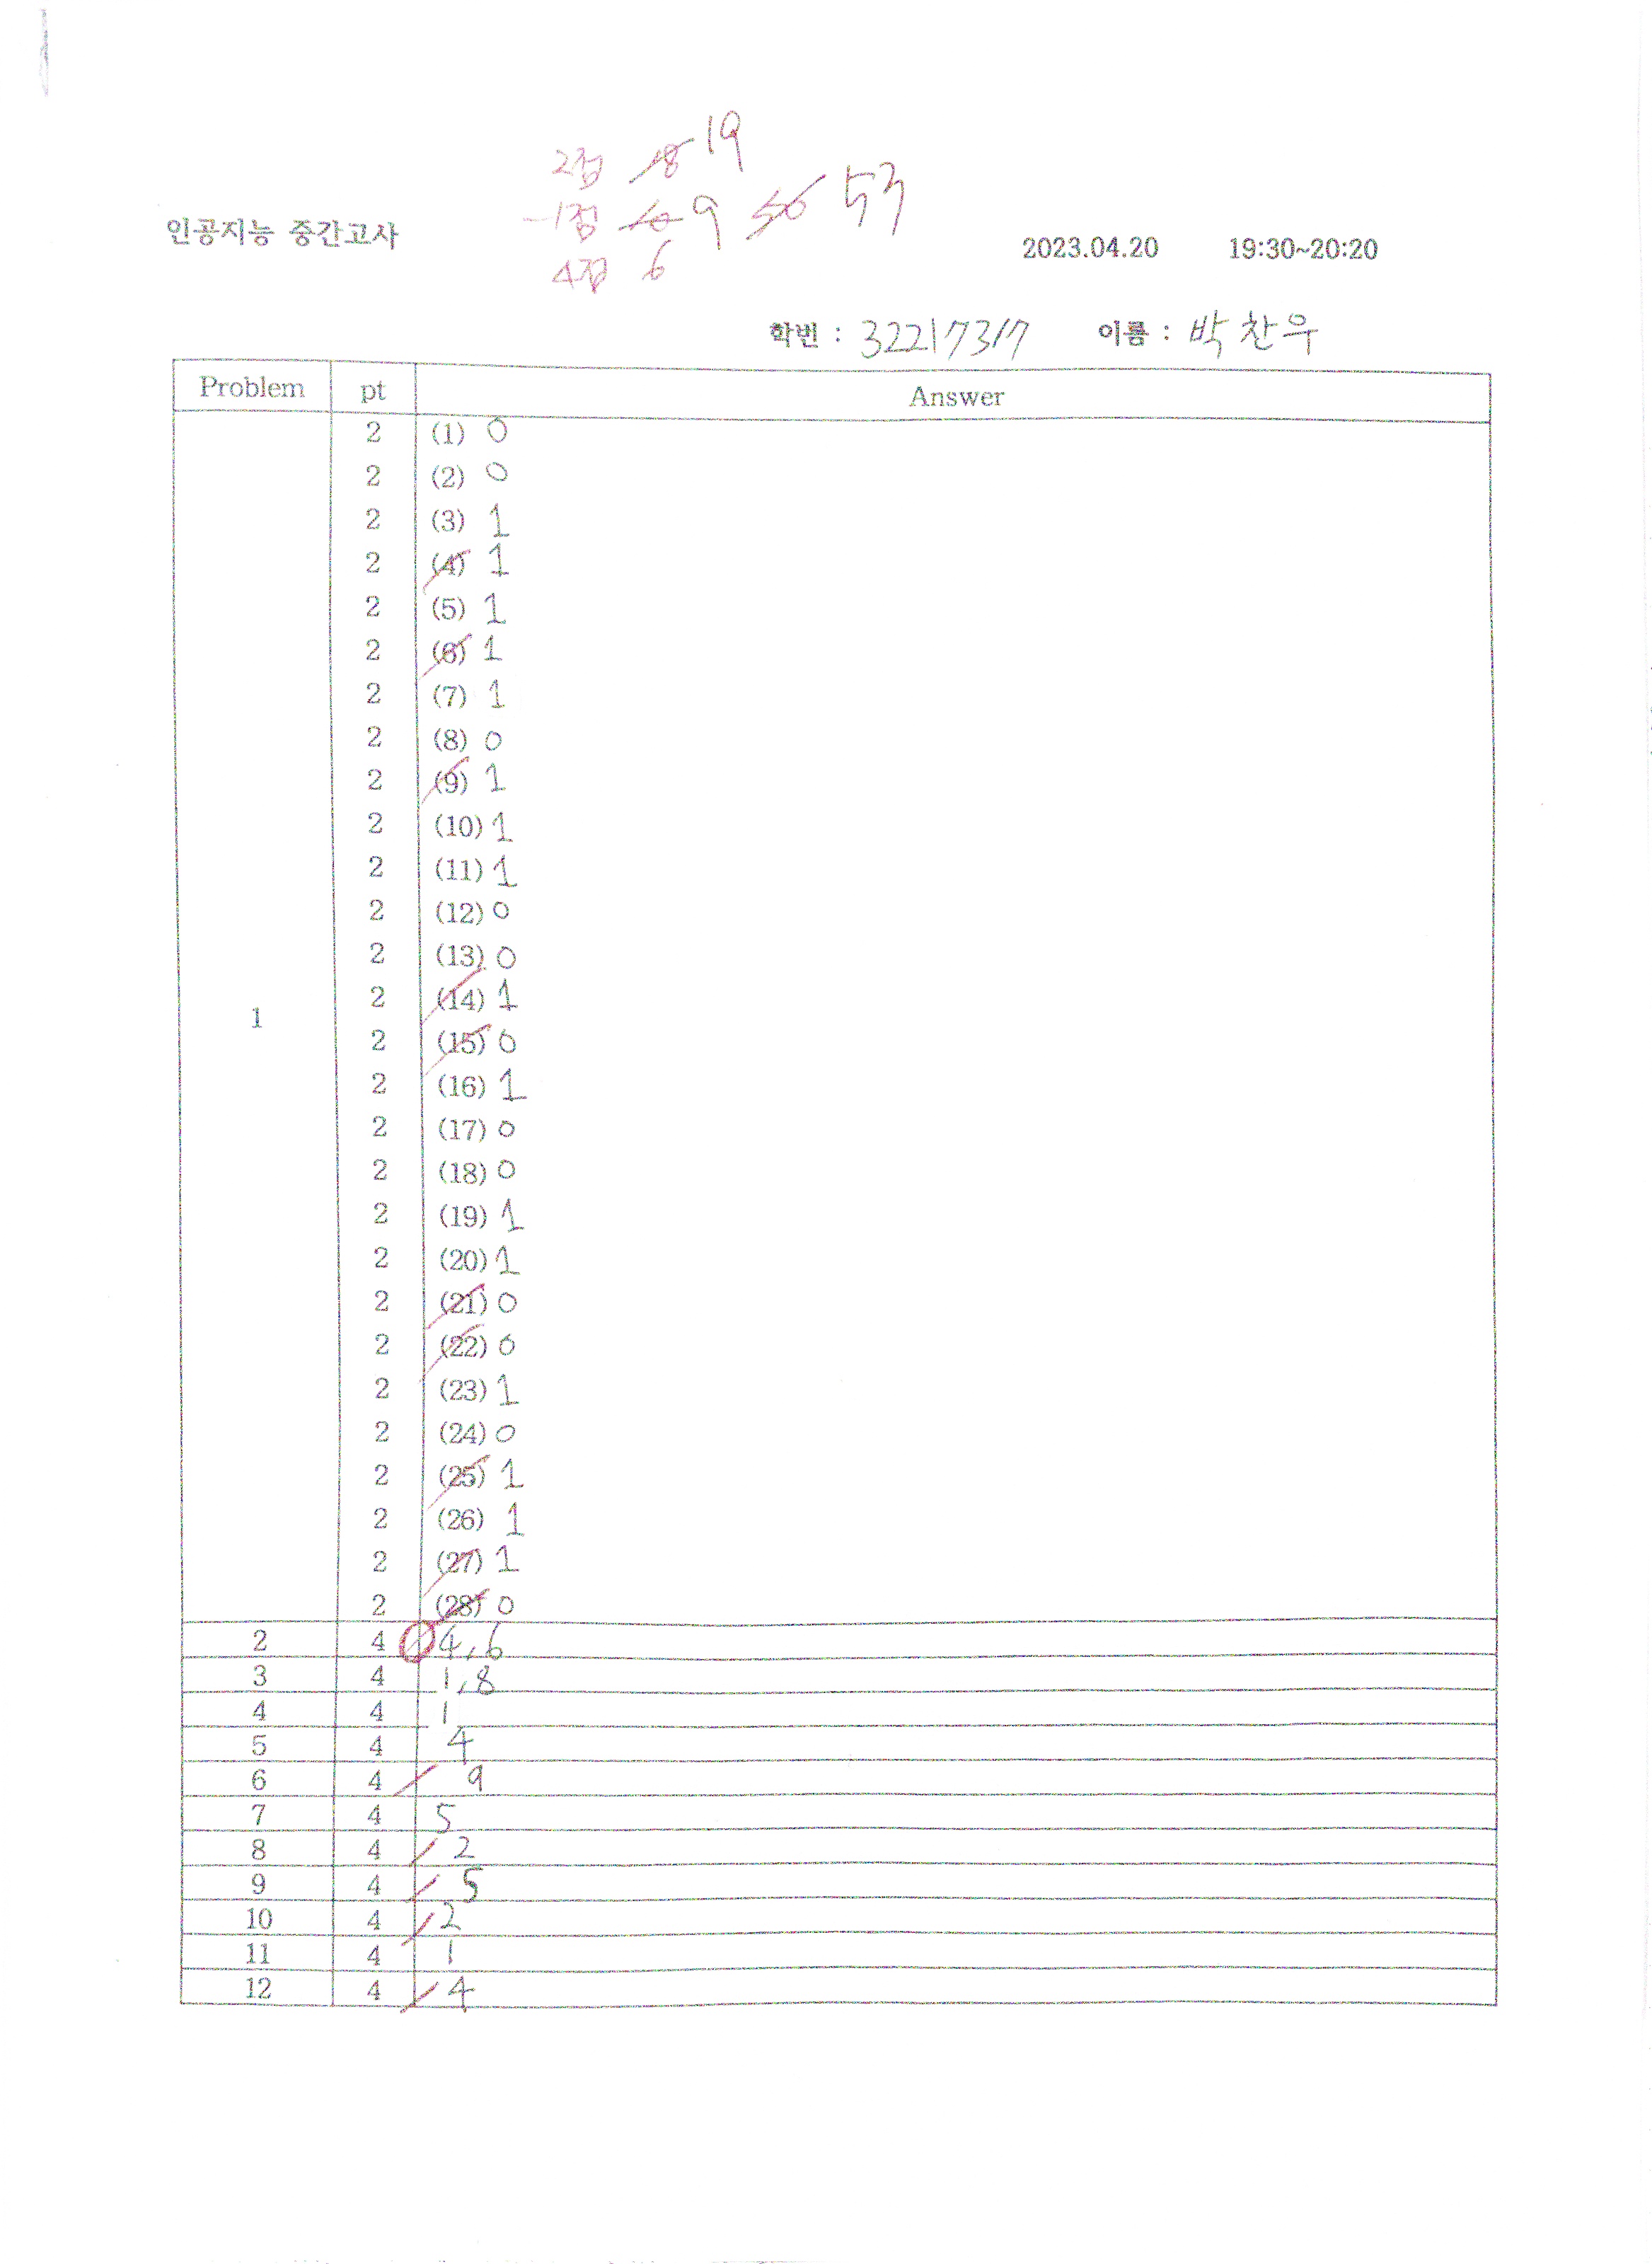 2점 18 19
-1점 10 9 50 53
4점 6
인공지능 중간고사
2023.04.20 19:30~20:20
학번 : 32217317 이름 : 박찬우
Problem pt Answer
1
2 (1) 0
2 (2) 0
2 (3) 1
2 (4) 1
2 (5) 1
2 (6) 1
2 (7) 1
2 (8) 0
2 (9) 1
2 (10) 1
2 (11) 1
2 (12) 0
2 (13) 0
2 (14) 1
2 (15) 0
2 (16) 1
2 (17) 0
2 (18) 0
2 (19) 1
2 (20) 1
2 (21) 0
2 (22) 0
2 (23) 1
2 (24) 0
2 (25) 1
2 (26) 1
2 (27) 1
2 (28) 0
2 4 4,6
3 4 1,8
4 4 1
5 4 4
6 4 9
7 4 5
8 4 2
9 4 5
10 4 2
11 4 1
12 4 4